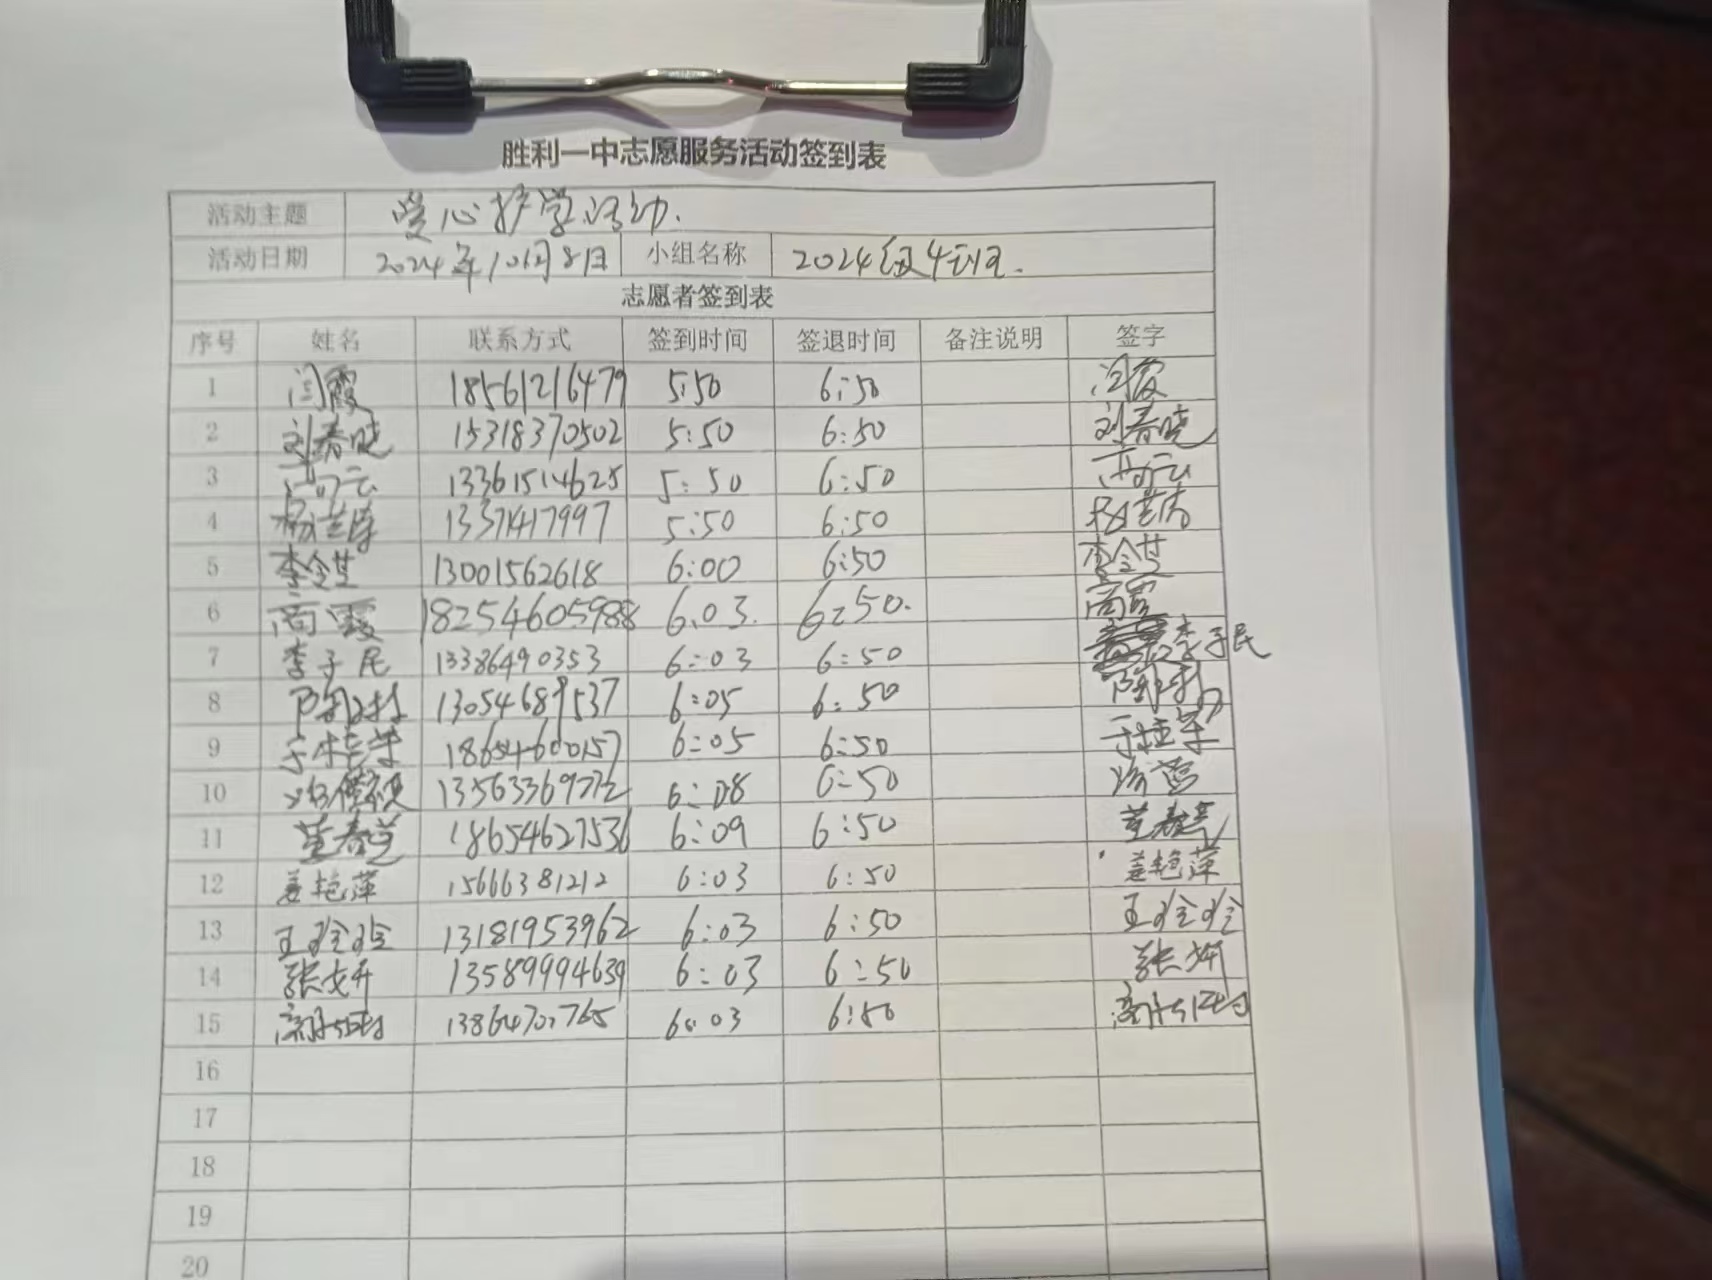 胜利一中志愿服务活动签到表
活动主题 爱心护学活动.
活动日期 2024年10月8日 小组名称 2024级4班.
志愿者签到表
序号 姓名 联系方式 签到时间 签退时间 备注说明 签字
1 闫霞 18561216479 5:50 6:50 闫霞
2 刘春晓 15318370502 5:50 6:50 刘春晓
3 13361514625 5:50 6:50
4 13371417997 5:50 6:50
5 李令其 13001562618 6:00 6:50 李令其
6 商霞 18254605988 6.03. 6:50. 商霞
7 李子民 13386490353 6:03 6:50 李子民
8 13054689537 6:05 6:50
9 于桂荣 18654600157 6:05 6:50 于桂荣
10 6:08 6:50
11 董春芝 18654627536 6:09 6:50 董春芝
12 姜艳萍 15666381212 6:03 6:50 姜艳萍
13 王玲玲 13181953962 6:03 6:50 王玲玲
14 张妍 13589994639 6:03 6:50 张妍
15 6:03 6:50
16
17
18
19
20